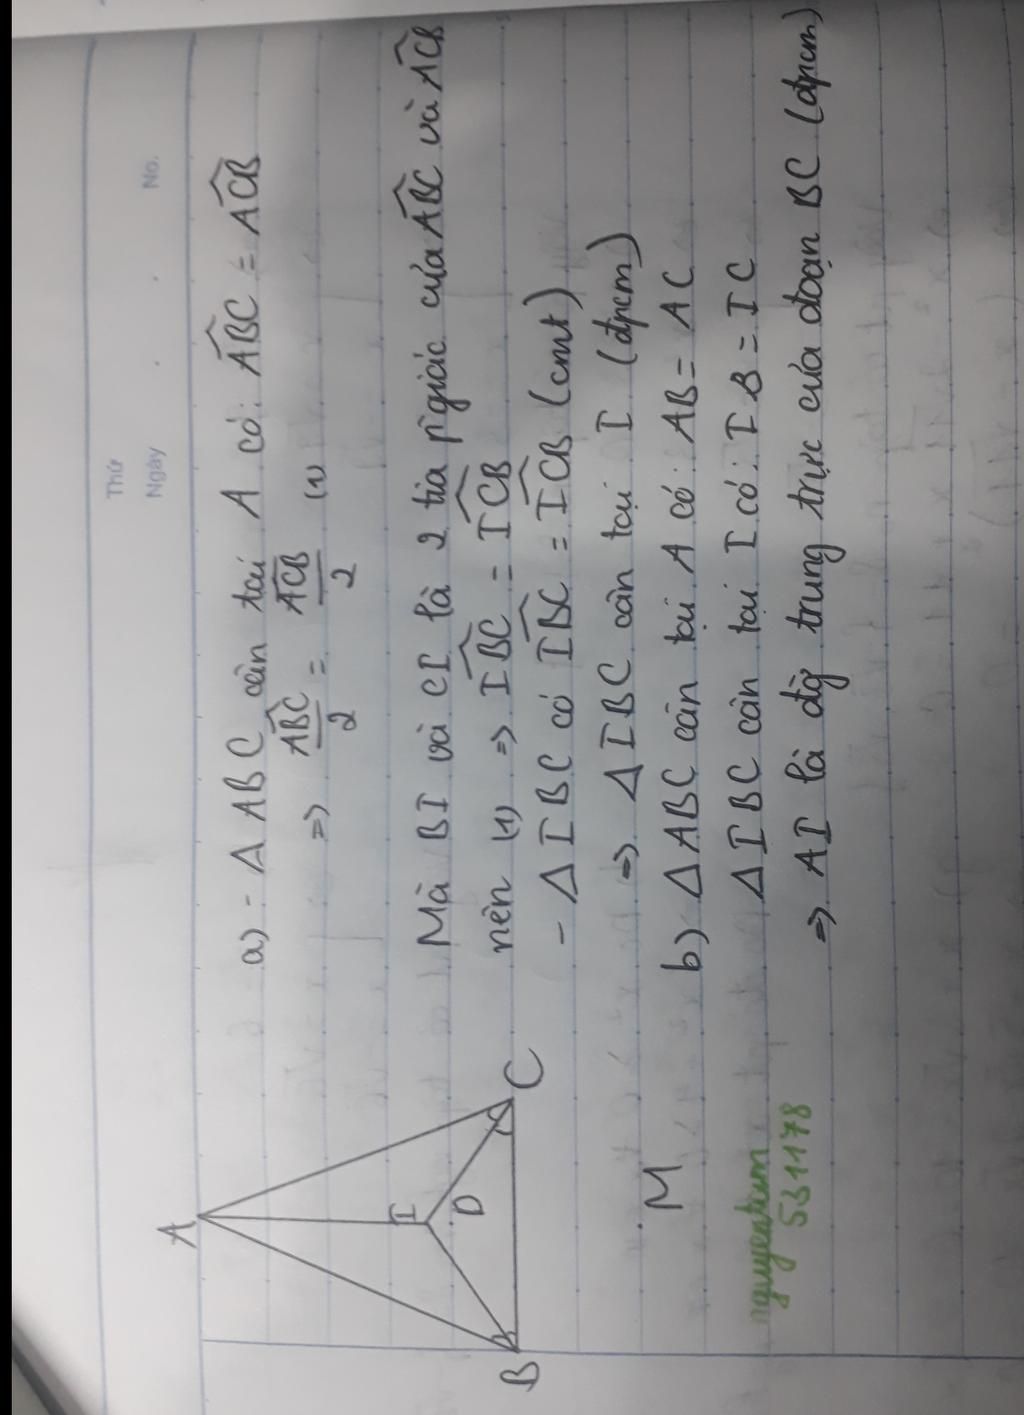 Thứ
Ngày . . No.
a) - Δ ABC cân tại A có: \widehat{ABC} = \widehat{ACB}
=> \frac{\widehat{ABC}}{2} = \frac{\widehat{ACB}}{2} (1)
Mà BI và CI là 2 tia p giác của \widehat{ABC} và \widehat{ACB}
nên (1) => \widehat{IBC} = \widehat{ICB}
- Δ IBC có \widehat{IBC} = \widehat{ICB} (cmt)
=> Δ IBC cân tại I (đpcm)
b) Δ ABC cân tại A có: AB = AC
Δ IBC cân tại I có: IB = IC
=> AI là đg trung trực của đoạn BC (đpcm)
A
I
D
B
C
M
nguyentam
531178